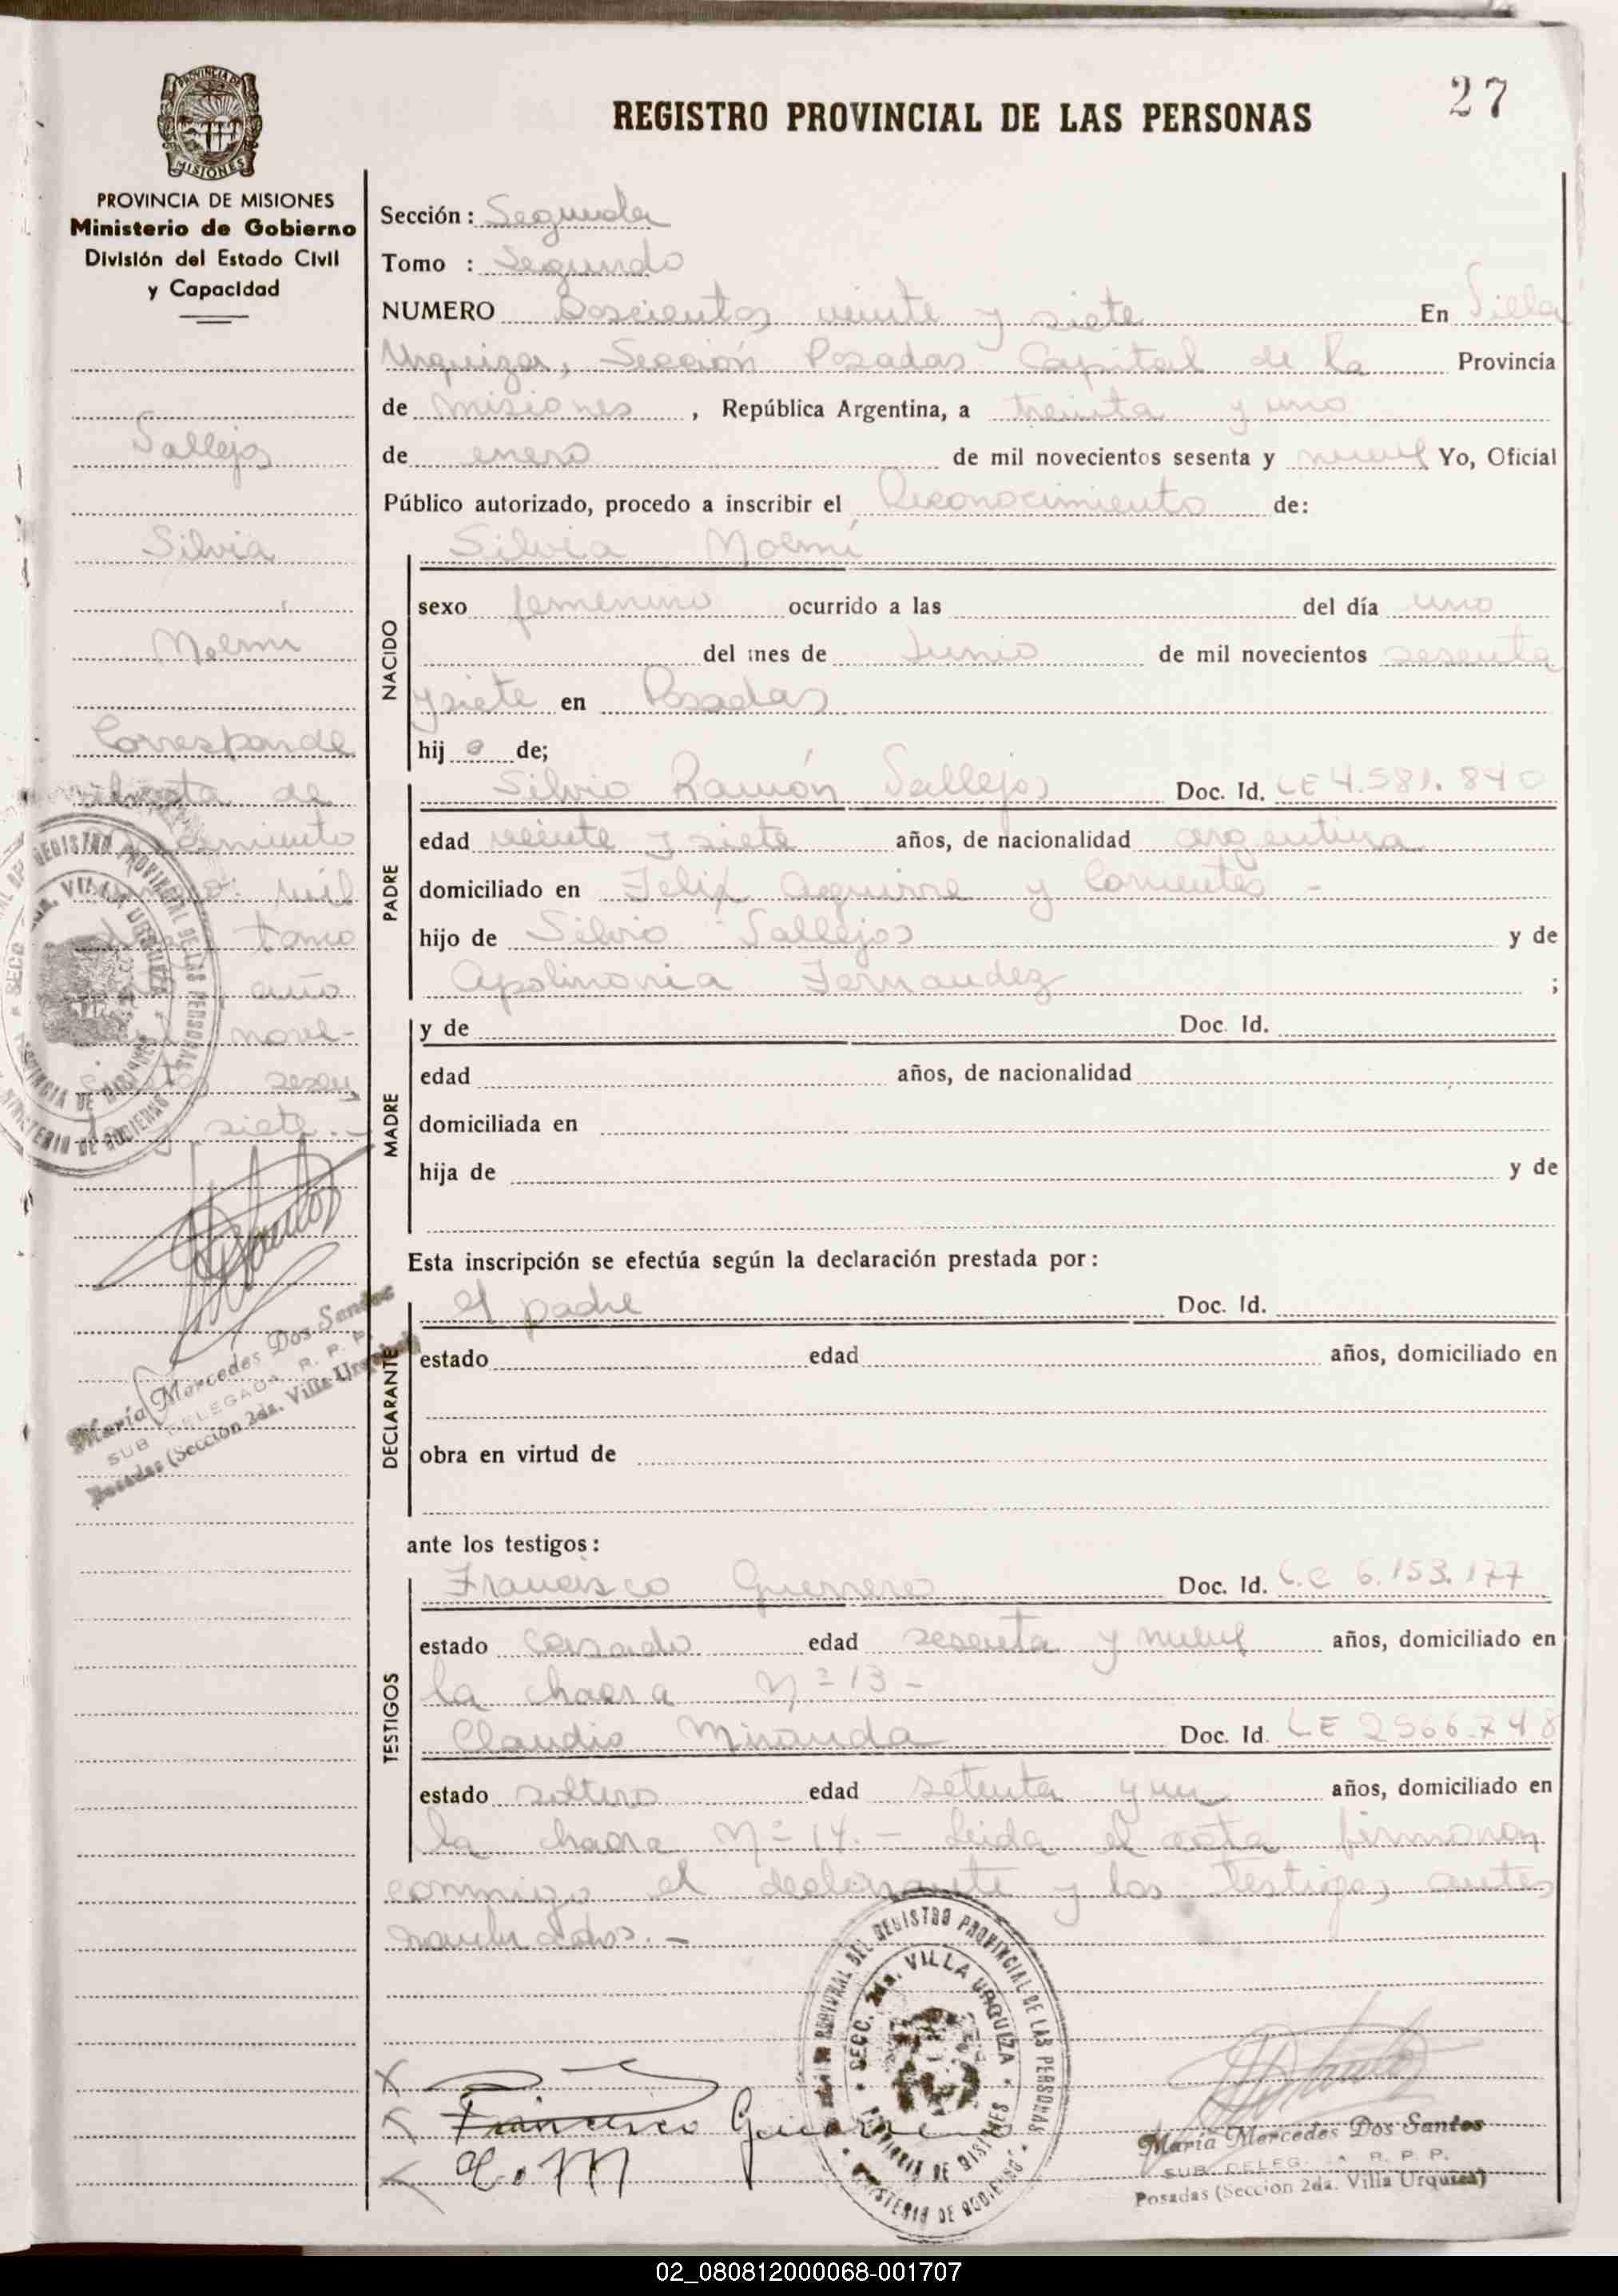 27
REGISTRO PROVINCIAL DE LAS PERSONAS
PROVINCIA DE MISIONES
Ministerio de Gobierno
División del Estado Civil
y Capacidad
Vallejos
Silvia
Noemi
Corresponde
acta de
mil
tomo
año
nove-
sesen
siete.-
María Mercedes Dos Santos
SUB DELEGADA R. P. P.
Posadas (Sección 2da. Villa Urquiza)
Sección: Segunda
Tomo : Segundo
NUMERO Doscientos veinte y siete En Villa
Urquiza, Sección Posadas Capital de la Provincia
de Misiones, República Argentina, a treinta y uno
de enero de mil novecientos sesenta y nueve Yo, Oficial
Público autorizado, procedo a inscribir el Reconocimiento de:
Silvia Noemí
NACIDO
sexo femenino ocurrido a las del día uno
del mes de Junio de mil novecientos sesenta
y siete en Posadas
hija de;
PADRE
Silvio Ramón Vallejos Doc. Id. LE 4.581.840
edad veinte y siete años, de nacionalidad argentina
domiciliado en Felix Aguirre y Corrientes -
hijo de Silvio Vallejos y de
Apolinaria Fernandez ;
MADRE
y de Doc. Id.
edad años, de nacionalidad
domiciliada en
hija de y de
Esta inscripción se efectúa según la declaración prestada por:
DECLARANTE
el padre Doc. Id.
estado edad años, domiciliado en
obra en virtud de
ante los testigos:
TESTIGOS
Francisco Guerrero Doc. Id. L.E 6.153.177
estado casado edad sesenta y nueve años, domiciliado en
la chacra Nº 13 -
Claudio Miranda Doc. Id. LE 2566.748
estado soltero edad setenta y un años, domiciliado en
la chacra Nº 14.- Leida el acta firmaron
conmigo el declarante y los testigos antes
nombrados.-
Francisco Guerrero
C. M
SECC. 2da. VILLA URQUIZA
REGISTRO PROVINCIAL DE LAS PERSONAS
PROVINCIA DE MISIONES
MINISTERIO DE GOBIERNO
María Mercedes Dos Santos
SUB DELEG R. P. P.
Posadas (Sección 2da. Villa Urquiza)
02_080812000068-001707